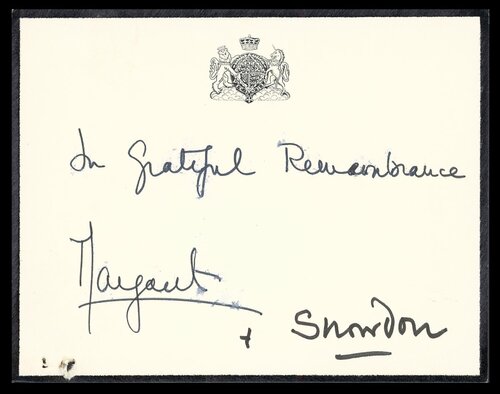 In Grateful Remembrance
Margaret
+ Snowdon